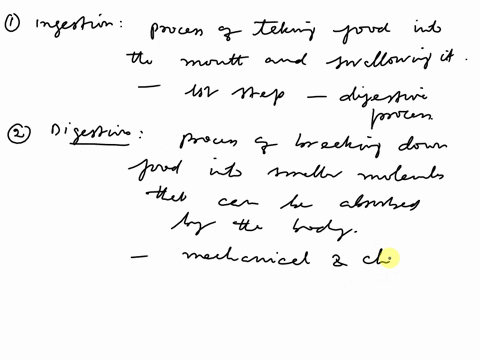 ① Ingestion: process of taking food into
the mouth and swallowing it.
— 1st step — digestive
process
② Digestive: process of breaking down
food into smaller molecules
that can be absorbed
by the body.
— mechanical & ch